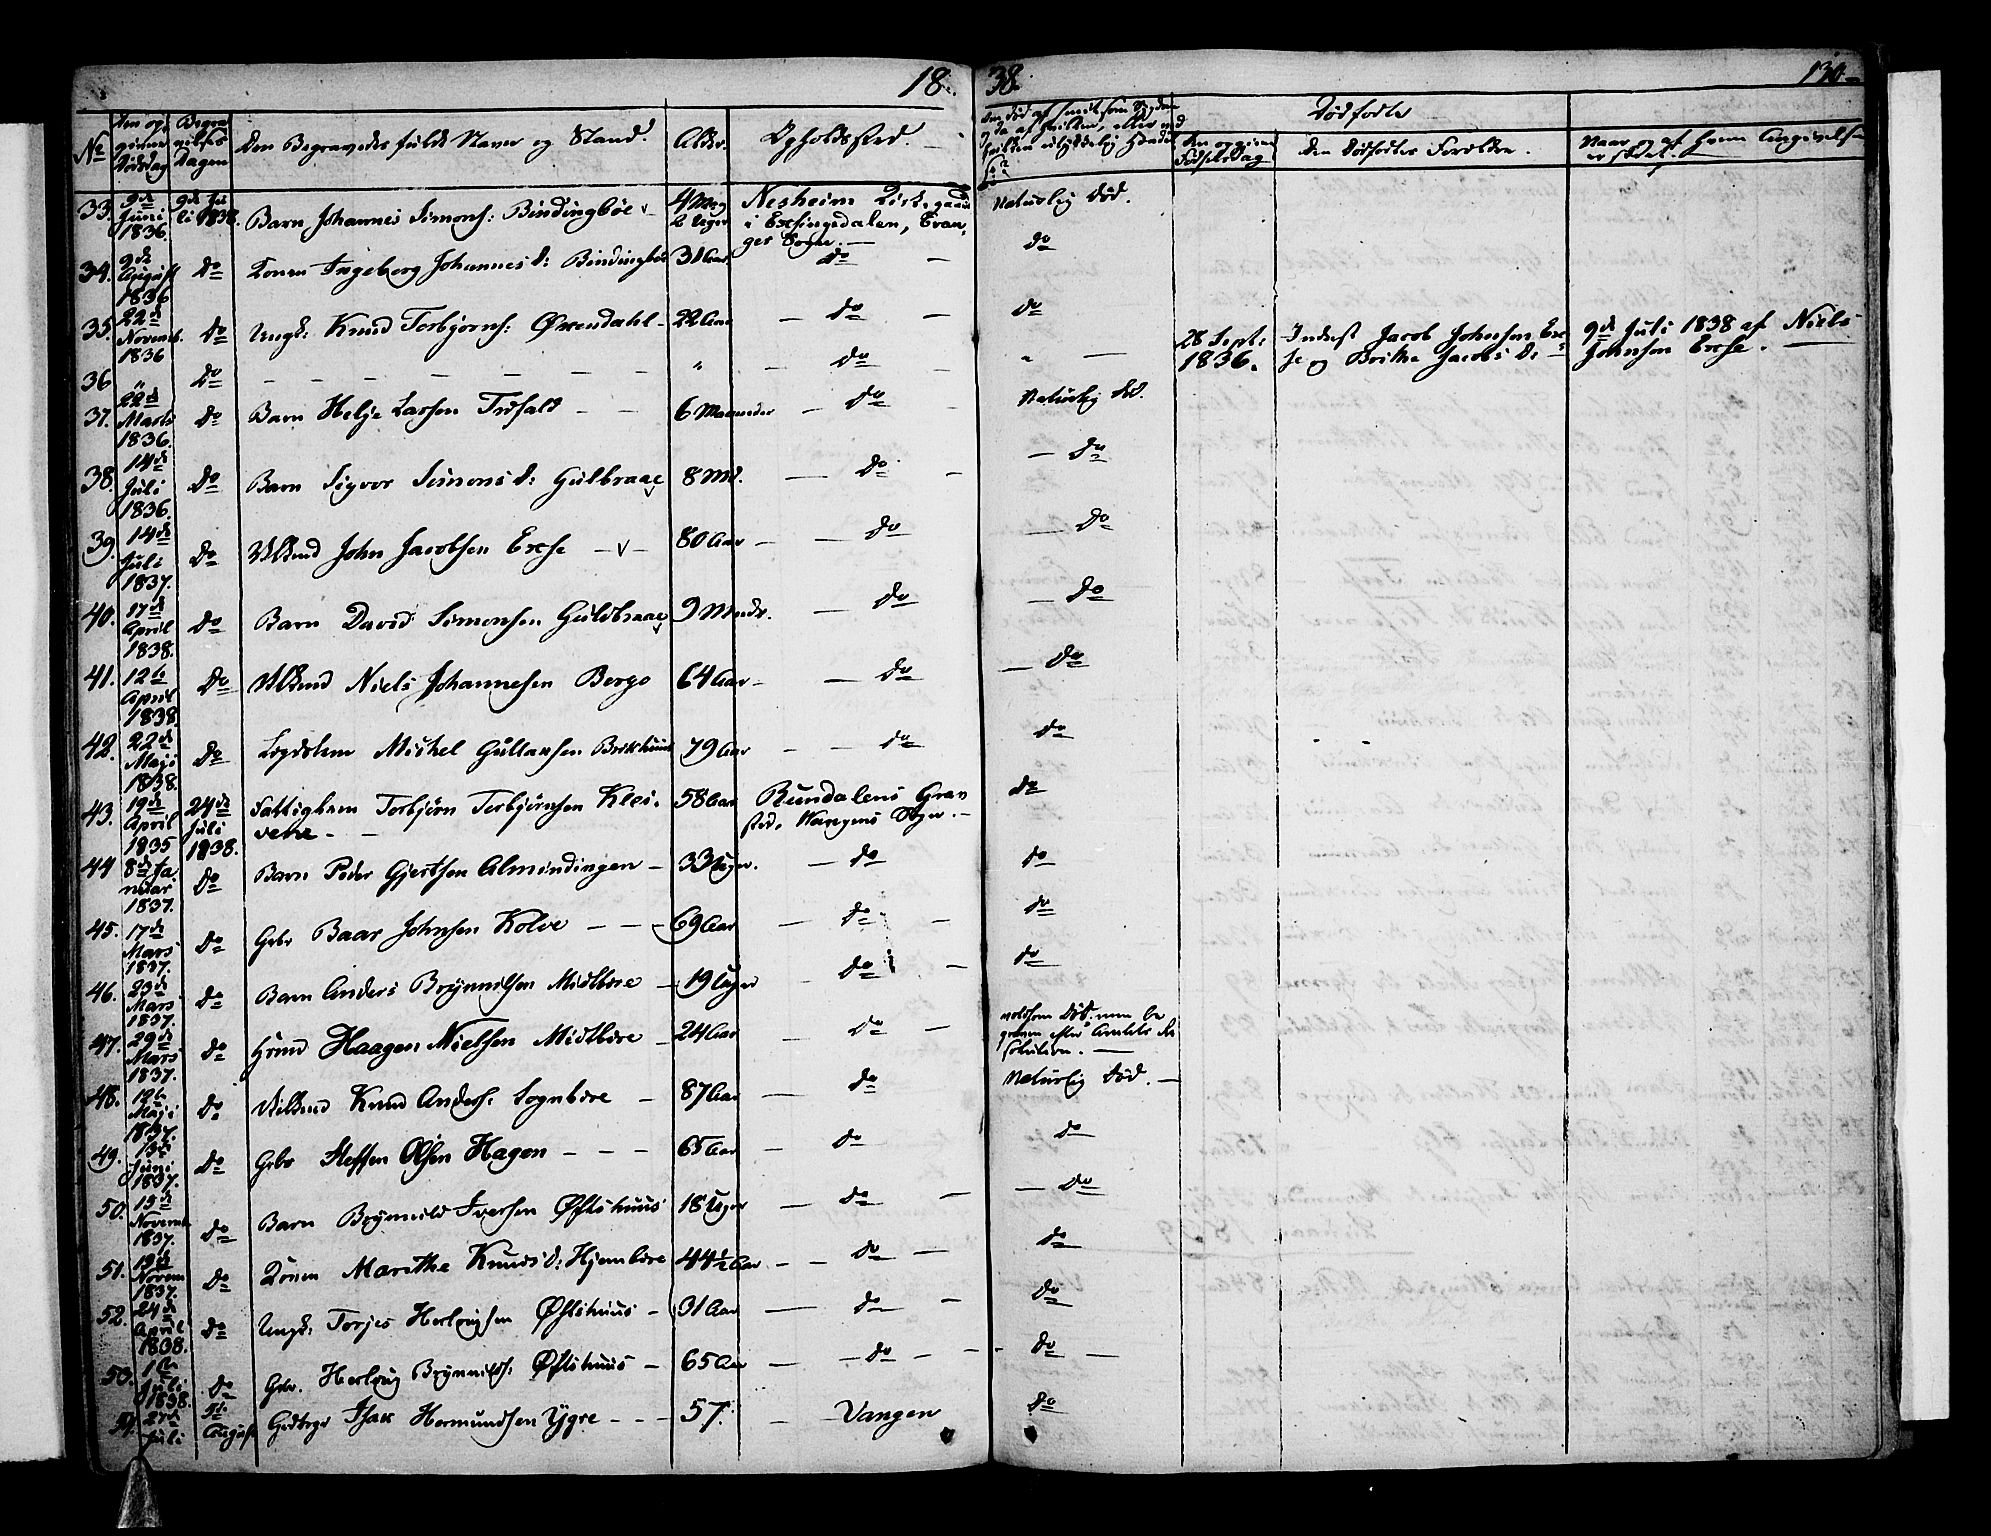 18. 38. 130
No Den op- givne Dødsdag Begra- velses Dagen Den Begravedes fulde Navn og Stand. Alder. Opholdssted.
Dødfødte
Den opgivne Fødselsdag Den Dødfødtes Forældre. Naar og af hvem Angivelsen er skeet.
33. 9de Juni 1836 9de Juli 1838. Barn Johannes Simons: Bindingbøe 4 Mdr 2 Uger Nesheim Kirkegaard i Exingedalen, Evanger Sogn. Naturlig Død.
34. 9de August 1836 Do Konen Ingeborg Johannesd: Bindingbøe 31 Aar Do Do
35. 22de Novemb. 1836 Do Ungk: Knud Torbjørns: Øxendahl 22 Aar Do Do
36 " Do " Do " 28 Sept. 1836. Indest Jacob Johnsen Exse og Britha Jacobs D: 9de Juli 1838 af Niels Johnsen Exse.
37. 22de Marts 1836. Do Barn Helje Larsen Trefald 6 Maaneder Do Naturlig Død.
38. 14de Juli 1836. Do Barn Sigvor Simons D: Gulbraae 8 Md. Do Do
39. 14de Juli 1837. Do Vilkmd John Jacobsen Exse 80 Aar Do Do
40. 17de April 1838. Do Barn David Simonsen Guldbraae 9 Mndr. Do Do
41. 12te April 1838. Do Vilkmd Niels Johannesen Bergo 64 Aar Do Do
42. 22de Maji 1838. Do Lægdslem Mikkel Gullaksen 79 Aar Do Do
43. 19de April 1835 24de Juli 1838. Fattiglem Torbjørn Torbjørnsen Klei- vene 58 Aar Rundalens Grav sted, Wangens Sogn. Do
44 8de Januar 1837. Do Barn Peder Gjertsen Almindingen 33 Uger. Do Do
45. 17de Mars 1837. Do Gbr Baar Johnsen Kolve 69 Aar Do Do
46. 23de Mars 1837. Do Barn Anders Brynnilsen Midtbøe 19 Uger Do Do
47. 29de Mars 1837. Do Hmnd Haagen Nielsen Midtbøe 24 Aar Do voldsom Død. men be graven efter Amtets Re solution.
48. 12te Maji 1837. Do Vilkmd Knud Anders: Sognbøe 87 Aar Do Naturlig Død.
49. 13de Juni 1837. Do Gbr Steffen Olsen Hagen 65 Aar Do Do
50. 15de Novemb. 1837. Do Barn Brynnild Iversen Øfsthuus 18 Uger Do Do
51. 19de Novem 1837. Do Konen Marithe Knuds D: Hjembøe 44½ Aar Do Do
52. 24de April 1838. Do Ungk: Torjes Herlougsen Øfsthuus 31 Aar Do Do
53. 1te Juli 1838. Do Gbr. Herloug Brynnilds: Øfsthuus 65 Aar Do Do
54. 27de Juli 5te August Isak Hermundsen Ygre 57. Vangen Do